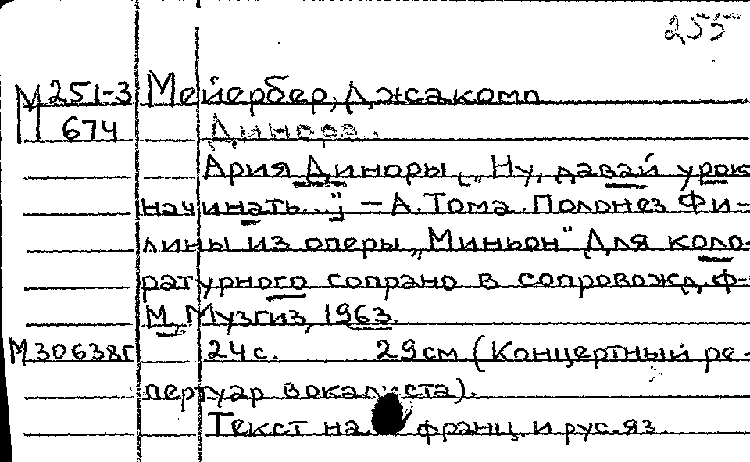 255
М 251-3 Мейербер, Джакомо
674 Динора.
Ария Диноры („Ну, давай урок
начинать...“; – А. Тома. Полонез Фи-
лины из оперы „Миньон“ Для коло-
ратурного сопрано в сопровожд. ф-
М., Музгиз, 1963.
М30638г 24 с. 29 см (Концертный ре-
пертуар вокалиста).
Текст на франц. и рус. яз.